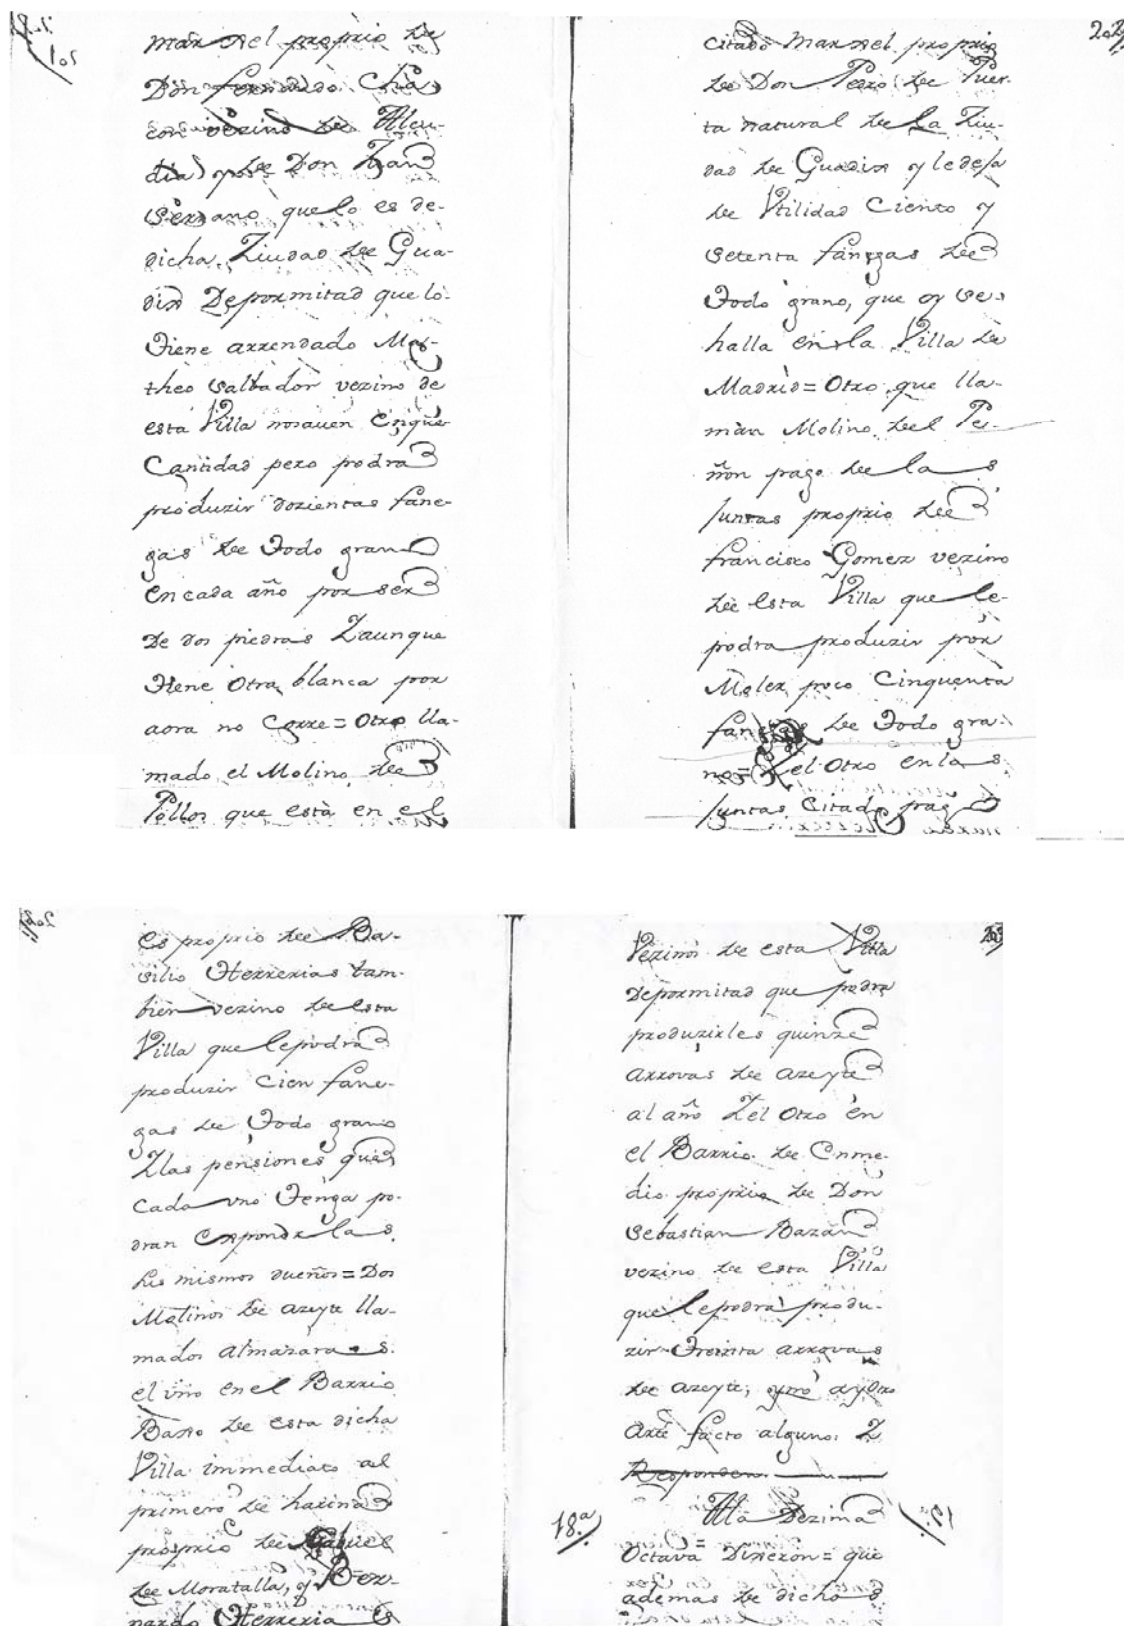 201
marxel proprio de
Don fernando Cha
con vezino de Alcu-
dia y de Don Juan
Serrano, que lo es de
dicha Ziudad de Gua-
dix Deporмitad que lo
tiene arrendado Ma-
theo Salbador vezino de
esta Villa no saven en que
Cantidad pero podra
produzir dozientas fane-
gas de todo grano
en cada año por ser
De dos piedras Zaunque
tiene otra blanca por
aora no Corre = Otro lla-
mado el Molino de
Pollos que està en el
202
citado marxel proprio
de Don Pedro de Puer-
ta natural de la Ziu-
dad de Guadix y le deja
de Vtilidad Ciento y
setenta fanegas de
todo grano, que oy se
halla en la Villa de
Madrid = Otro que lla-
man Molino del Pe-
ñon pago de las
Juntas proprio de
francisco Gomez vezino
de esta Villa que le
podra produzir por
Moler poco Cinquenta
fanegas de todo gra-
no = el otro en las
Juntas Citado pago
es proprio de Ba-
silio Herrerias tam-
bien vezino de esta
Villa que le podra
produzir Cien fane-
gas de todo grano
Zlas pensiones que
Cada vno tenga po-
dran exponerlas
los mismos dueños = Dos
Molinos de azeyte lla-
mados almazaras
el vno en el Barrio
Baxo de esta dicha
Villa immediato al
primero de harina
proprio de Gabriel
de Moratalla, y Ber-
nardo Herrerias
Vezinos de esta Villa
Depormitad que podra
produzirles quinze
arrovas de azeyte
al año Zel otro en
el Barrio de Enme-
dio proprio de Don
Sebastian Bazan
vezino de esta Villa
que le podra produ-
zir treinta arrovas
de azeyte, y no ay otro
arte facto alguno. Z
Responden.
18.ª A la Dezima
Octava Dixeron = que
ademas de dichos